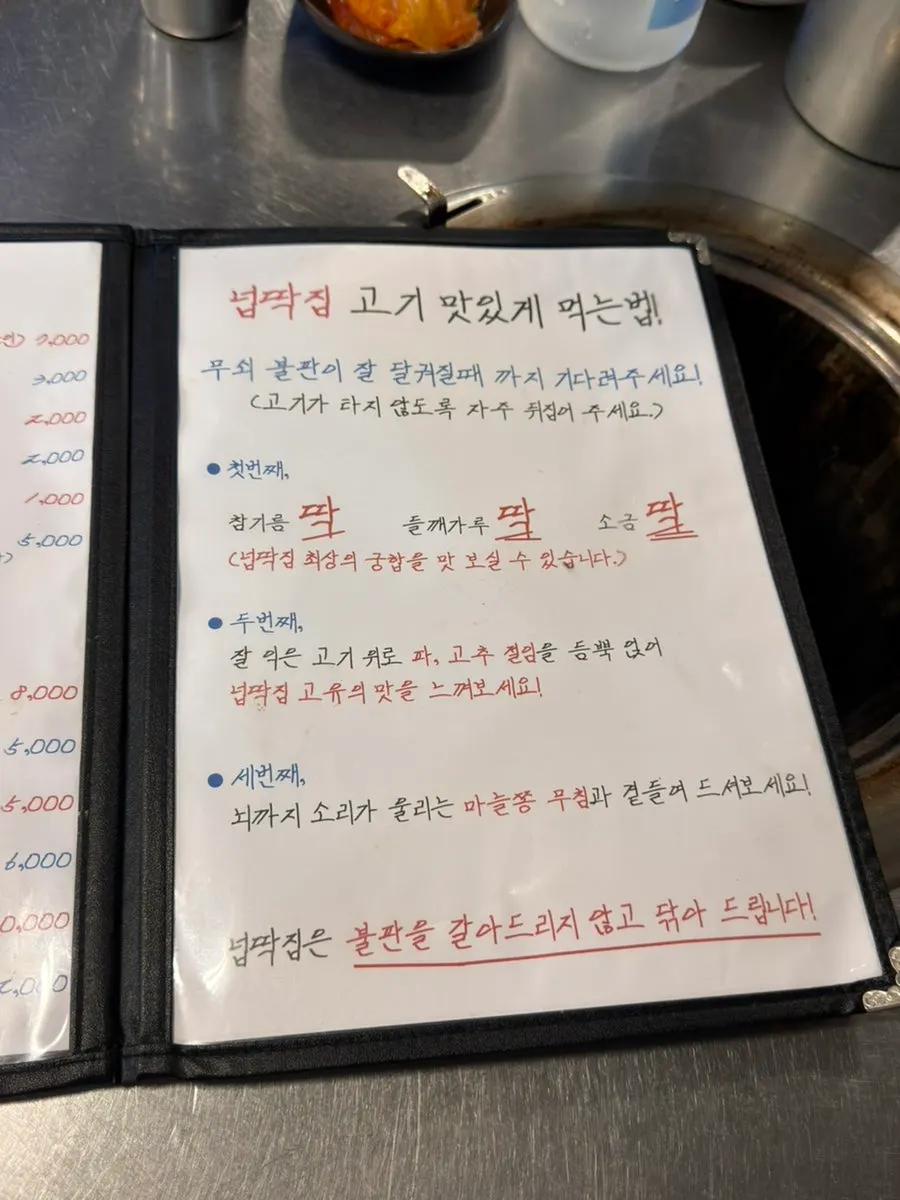 7,000
3,000
2,000
2,000
1,000
5,000
8,000
5,000
5,000
6,000
0,000
2,000
넙딱집 고기 맛있게 먹는법!
무쇠 불판이 잘 달궈질때 까지 기다려주세요!
(고기가 타지 않도록 자주 뒤집어 주세요.)
● 첫번째,
참기름 딱 들깨가루 딱 소금 딱
(넙딱집 최상의 궁합을 맛 보실 수 있습니다.)
● 두번째,
잘 익은 고기 위로 파, 고추 절임을 듬뿍 얹어
넙딱집 고유의 맛을 느껴보세요!
● 세번째,
뇌까지 소리가 울리는 마늘쫑 무침과 곁들여 드셔보세요!
넙딱집은 불판을 갈아드리지 않고 닦아 드립니다!